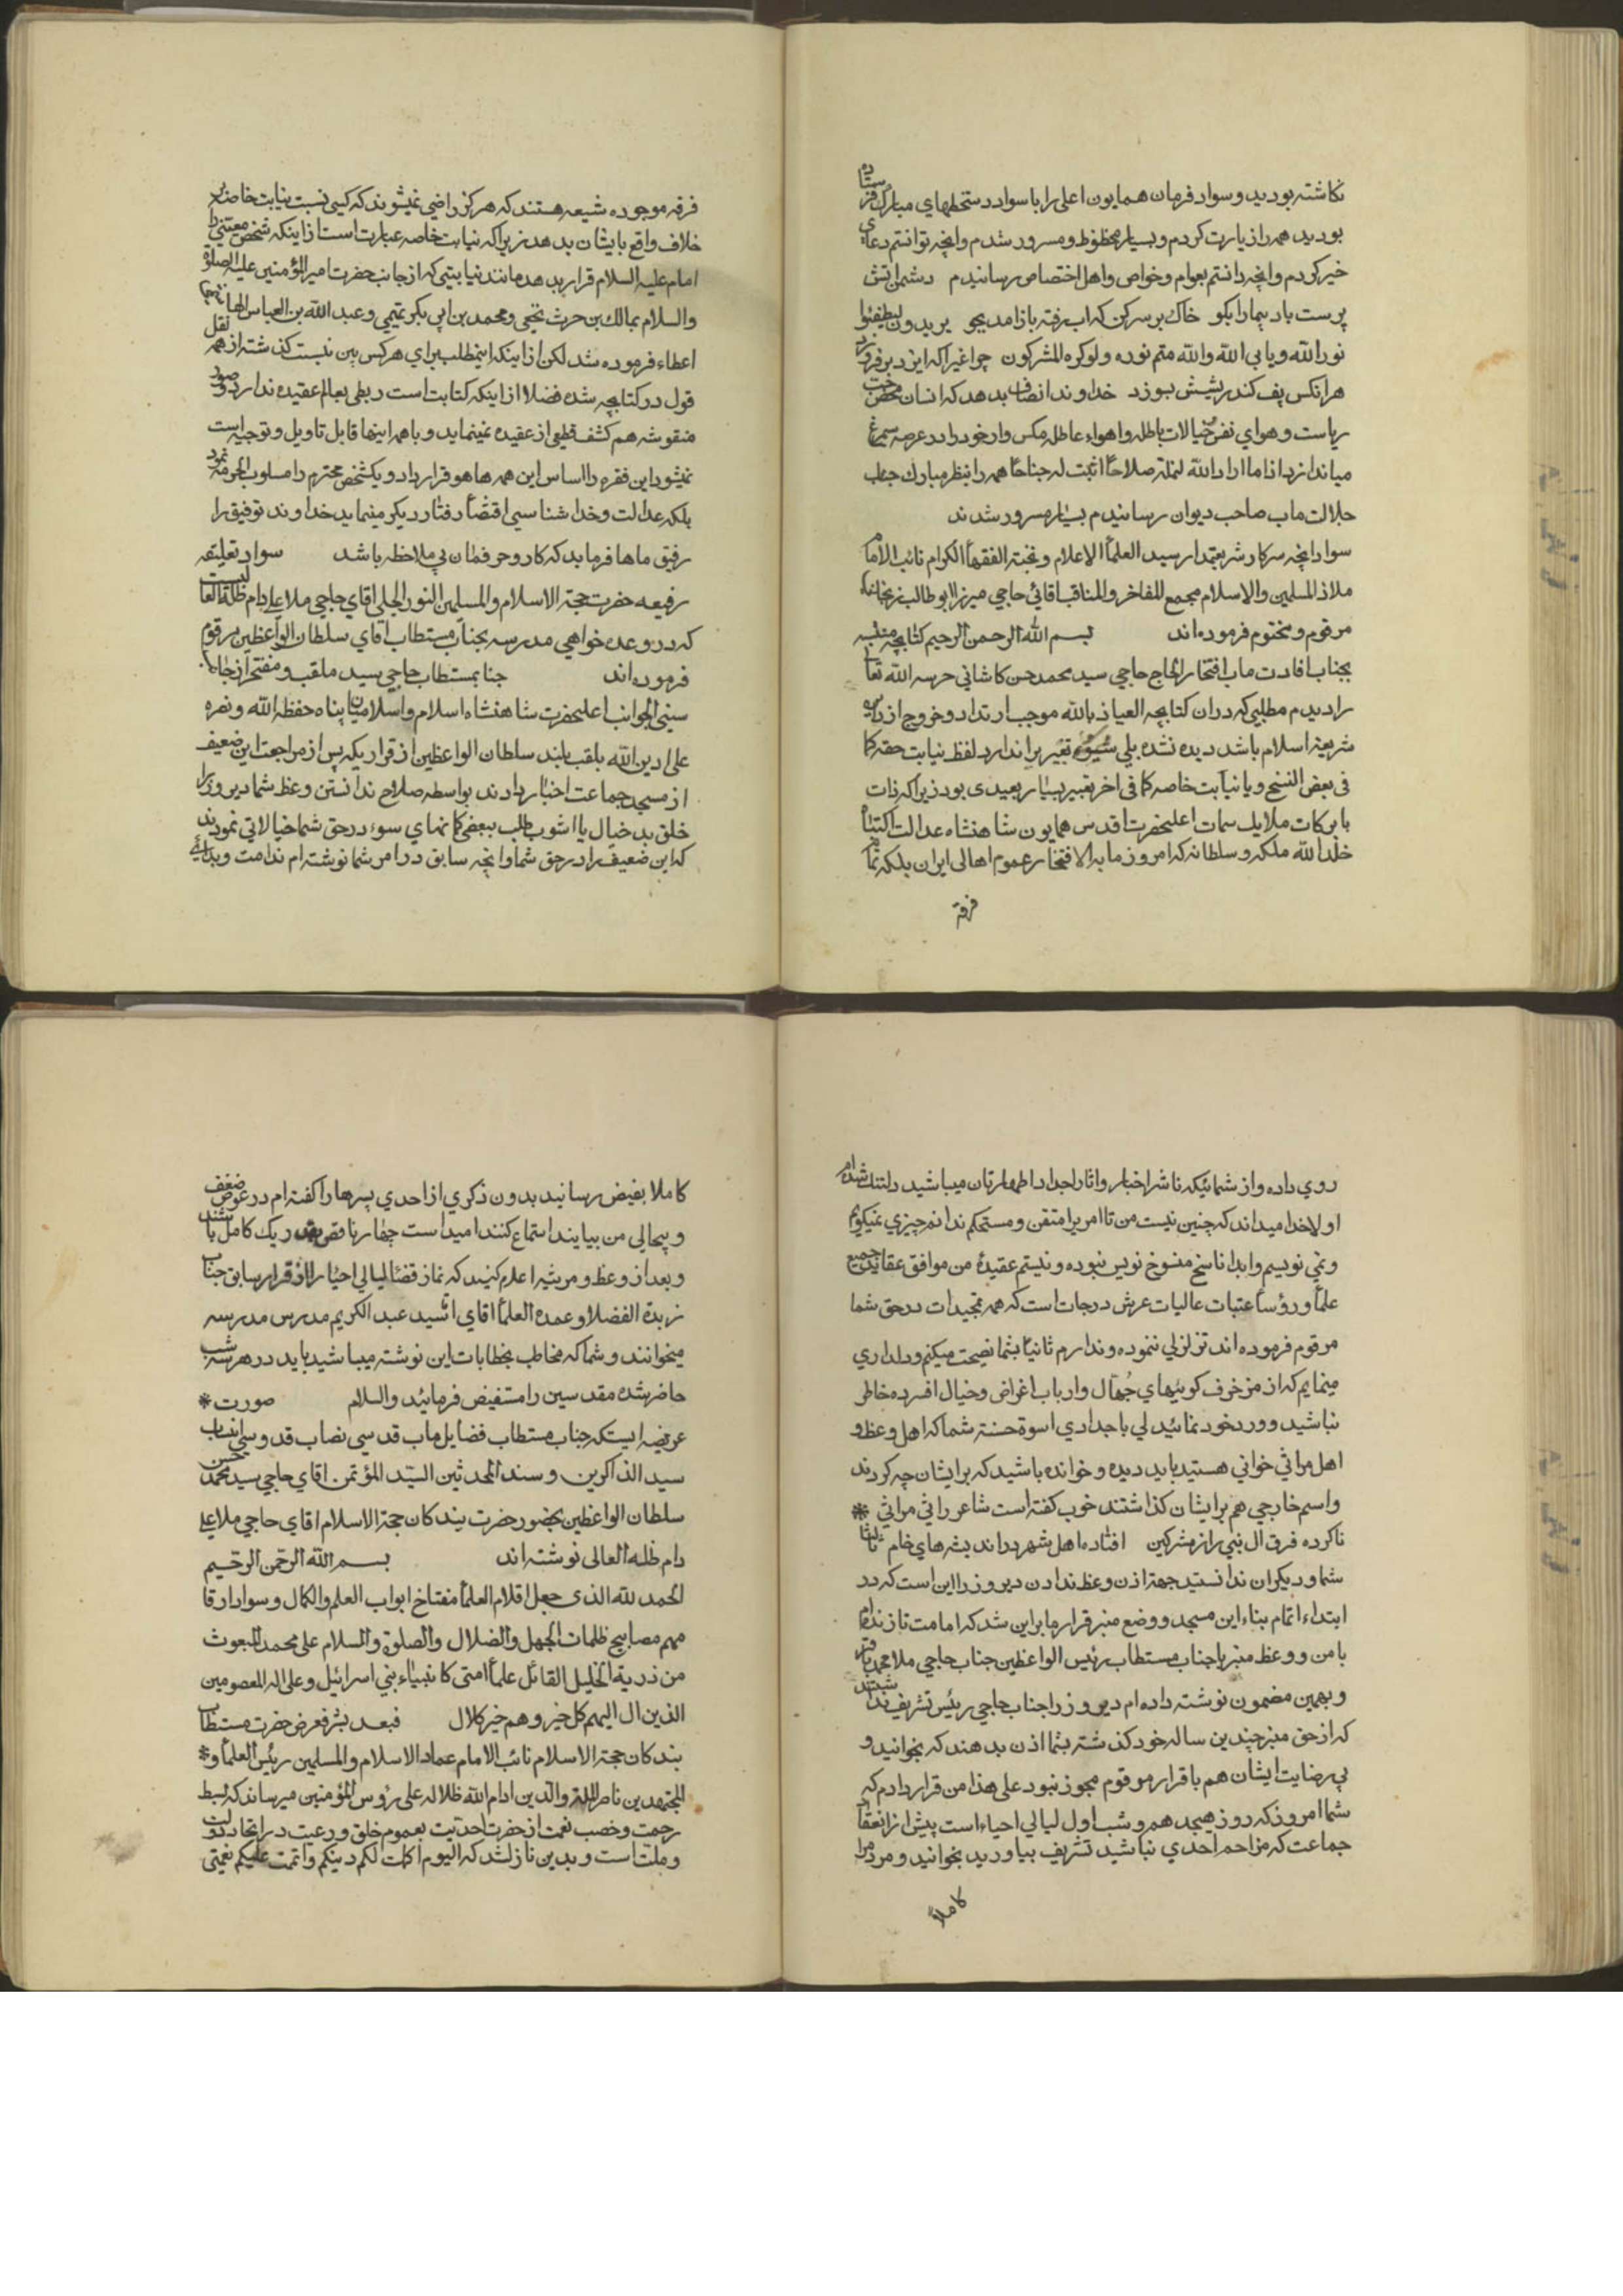 نکاشته بودید و سواد فرمان همایون اعلی را با سواد دستخطهای مبارک فرستاده
بودید همه را زیارت کردم و بسیار محظوظ و مسرور شدم و انچه توانستم دعای
خیر کردم و انچه دانستم بعوام و خواص و اهل اختصاص رسانیدم دشمن اتش
پرست باد پیما را بکو خاک بر سر کن که اب رفته باز امد بجو یریدون لیطفئوا
نور الله و یابی الله والله متم نوره و لو کره المشرکون چراغیرا که ایزد بر فروزد
هر انکس پف کند ریشش بسوزد خداوند انصاف بدهد که انسان محض حب
ریاست و هوای نفس خیالات باطله و اهواء عاطله مکس وار خود را در عرصه سیمرغ
میاندازد اذا ما اراد الله لنملة صلاحا اثبت له جناحا همه را بنظر مبارک جناب
جلالت ماب صاحب دیوان رسانیدم بسیار مسرور شدند
سواد انچه سرکار شریعتمدار سید العلماء الاعلام و نخبة الفقهاء الکرام نائب الامام
ملاذ المسلمین والاسلام مجمع المفاخر والمناقب اقائی حاجی میرزا ابو طالب زنجانی
مرقوم و مختوم فرموده اند بسم الله الرحمن الرحیم کتابچه منتسبه
بجناب افادت ماب افتخار الحاج حاجی سید محمد حسن کاشانی حرسه الله تعا
را دیدم مطلبی که در ان کتابچه العیاذ بالله موجب ارتداد و خروج از دین
شریعة اسلام باشد دیده نشده بلی تعبیر براندارد لفظ نیابت حقه کما
فی بعض النسخ و یا نیابت خاصه کما فی اخر تعبیر بسیار بعیدی بود زیرا که ذات
با برکات ملایک سمات اعلیحضرت اقدس همایون شاهنشاه عدالت اکتناه
خلد الله ملکه و سلطانه که امروز ما به الافتخار عموم اهالی ایران بلکه تمام
فرقه
فرقه موجوده شیعه هستند که هرکز راضی نمیشوند که کسی نسبت نیابت خاصه بر
خلاف واقع بایشان بدهد زیرا که نیابت خاصه عبارت است از اینکه شخص معینی را
امام علیه السلام قرار بدهد مانند نیابتی که از جانب حضرت امیر المؤمنین علیه الصلوة
والسلام بمالک بن حرث نخعی و محمد بن ابی بکر تمیمی و عبد الله بن العباس
اعطاء فرموده شد لکن از اینکه اینمطلب برای هر کس بین نیست کذشته از همه نقل
قول در کتابچه شده فضلا از اینکه کتابت است ربطی بعالم عقیده ندارد و صور
منقوشه هم کشف قطعی از عقیده نمینماید و با همه اینها قابل تاویل و توجیه است
نمیشود این فقره را اساس این همه هاهو قرار داد و یکشخص محترم را مسلوب الحرمه نمود
بلکه عدالت و خدا شناسی اقتضاء رفتار دیکر مینماید خداوند توفیق را
رفیق ماها فرماید که کار و حرفمان بی ملاحظه باشد سواد تعلیقه
رفیعه حضرت حجة الاسلام والمسلمین النور الجلی اقای حاجی ملا علی دام ظله العا لیست
که در وعده خواهی مدرسه بجناب مستطاب اقای سلطان الواعظین مرقوم
فرموده اند جنابمستطاب حاجی سید ملقب و مفتخر از جانب
سنی الجوانب اعلیحضرت شاهنشاه اسلام و اسلامیان پناه حفظه الله و نصره
علی ادین الله بلقب بلند سلطان الواعظین از قراریکه پس از مراجعت این ضعیف
از مسجد جماعت اخبار دادند بواسطه صلاح ندانستن وعظ شما دیروز را
خلق بد خیال یا اشوب طلب ببعضی کمانهای سوء در حق شما خیالاتی نمودند
که این ضعیف را در حق شما و انچه سابق در امر شما نوشته ام ندامت و بدائی
روی داده و از شمائیکه ناشر اخبار و اثار اجداد اطهارتان میباشید دلتنک شده ام
اولا خدا میداند که چنین نیست من تا امریرا متقن و مستحکم ندانم چیزی نمیکویم
و نمی نویسم و ابدا ناسخ منسوخ نویس نبوده و نیستم عقیدهٔ من موافق عقاید جمیع
علماء و رؤساء عتبات عالیات عرش درجات است که همه تمجیدات در حق شما
مرقوم فرموده اند تزلزلی ننموده و ندارم ثانیا بشما نصیحت میکنم و دلداری
مینمایم که از مزخرف کوئیهای جُهّال و ارباب اغراض و خیال افسرده خاطر
نباشید و ورد خود نمائید لی باجدادی اسوة حسنة شما که اهل وعظ و
اهل مراثی خوانی هستید باید دیده و خوانده باشید که برایشان چه کردند
و اسم خارجی هم برایشان کذاشتند خوب کفته است شاعر راثی مراثی *
ناکرده فرق ال نبی را ز مشرکین افتاده اهل شهر در اندیشه های خام ثالثا
شما و دیکران ندانستید جهة اذن وعظ ندادن دیروز را این است که در
ابتداء اتمام بناء این مسجد و وضع منبر قرار ما بر این شد که امامت نماز ندام
با من و وعظ منبر با جناب مستطاب رئیس الواعظین جناب حاجی ملا محمد باقر
و بهمین مضمون نوشته داده ام دیروز را جناب حاجی رئیس تشریف نداشتند
که از حق منبر چندین ساله خود کذشته بشما اذن بدهند که بخوانید و
بی رضایت ایشان هم باقرار مرقوم مجوز نبود علی هذا من قرار دادم که
شما امروز که روز هیجدهم و شب اول لیالی احیاء است پیش از انعقاد
جماعت که مزاحم احدی نباشید تشریف بیاورید بخوانید و مردم را
کاملاً
کاملا بفیض رسانید بدون ذکری از احدی پسرها را کفته ام در عوض ضعف
و بیحالی من بیایند استماع کنند امید است چهار ناقص بقدر یک کامل باشند
و بعد از وعظ و مرثیه اعلام کنید که نماز قضاء لیالی احیا را از قرار سابق جناب
زبدة الفضلا و عمدة العلماء اقای اسّید عبد الکریم مدرس مدرسه
میخوانند و شما که مخاطب بخطابات این نوشته میباشید باید در هر سه شب
حاضر شده مقدسین را مستفیض فرمائید والسلام صورت *
عریضه ایستکه جناب مستطاب فضایل ماب قدسی نصاب قدوسی انتساب
سید الذاکرین و سند المحدثین السیّد المؤتمن اقای حاجی سید محمد حسن
سلطان الواعظین بحضور حضرت بندکان حجة الاسلام اقای حاجی ملا علی
دام ظله العالی نوشته اند بسم الله الرحمن الرحیم
الحمد لله الذی جعل اقلام العلماء مفتاح ابواب العلم والکمال و سواد ارقا
مهم مصابیح ظلمات الجهل والضلال والصلوة والسلام علی محمد المبعوث
من ذریة الخلیل القائل علماء امتی کانبیاء بنی اسرائیل و علی اله المعصومین
الذین ال الیهم کل خیر و هم خیر کلال فبعد بشرفعرض حضرت مستطاب
بندکان حجة الاسلام نائب الامام عماد الاسلام والمسلمین رئیس العلماء و *
المجتهدین ناصر الملة والدین ادام الله ظلاله علی رؤس المؤمنین میرساند که بسط
رحمت و خصب نعمت از حضرت احدیت بعموم خلق و رعیت در اتحاد دولت
و ملت است و بدین نازلشد که الیوم اکملت لکم دینکم و اتممت علیکم نعمتی